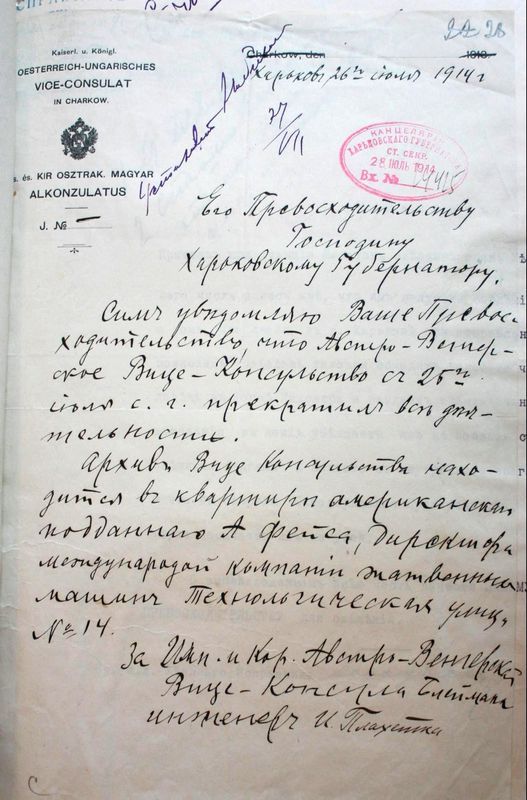 22 28
Kaiserl. u. Königl.
OESTERREICH-UNGARISCHES
VICE-CONSULAT
IN CHARKOW.
s. és. KIR OSZTRAK. MAGYAR
ALKONZULATUS
J. № —
Charkow, den 191
Харьковъ, 26го іюля 1914 г
27/VII
КАНЦЕЛЯРІЯ
ХАРЬКОВСКАГО ГУБЕРНАТОРА
28 ІЮЛЬ 1914
Вх. №
Его Превосходительству
Господину
Харьковскому Губернатору.
Симъ уведомляю Ваше Превос-
ходительство, что Австро-Венгер-
ское Вице-Консульство съ 25го
іюля с. г. прекратилъ всѣ дѣя-
тельности.
Архивъ Вице Консульства нахо-
дится въ квартиры американскаго
подданнаго А Фейса, директора
международой компаніи жатвенныхъ
машинъ Технологическая улиц.
№ 14.
За Имп. и Кор. Австро-Венгерскаго
Вице-Консула
инженеръ И. Плахетка